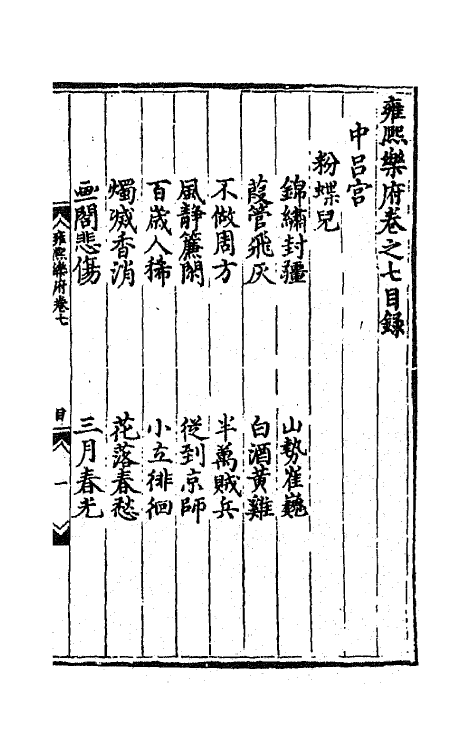 雍熙樂府卷之七目録
中呂宫
粉蝶兒
錦繡封疆　山勢崔巍
葭管飛灰　白酒黄雞
不做周方　半萬賊兵
風静簾閑　從到京師
百歲人稀　小立徘徊
燭滅香消　花落春愁
畫閣悲傷　三月春光
雍熙樂府卷七　目　一